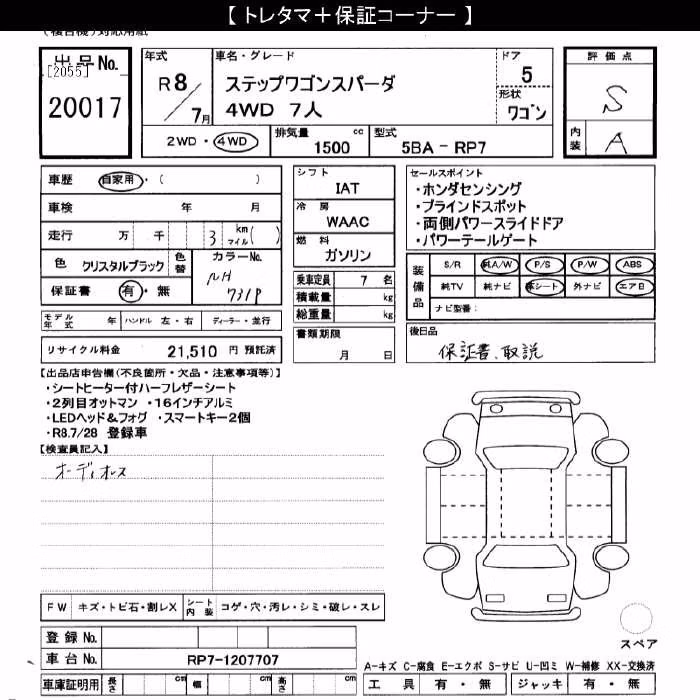 【 トレタマ＋保証コーナー 】
(複合機)対応用紙
出品No.
[2055]
20017
年式
R8／7月
車名・グレード
ステップワゴンスパーダ
4WD 7人
ドア
5
形状
ワゴン
2WD・4WD
排気量
1500 cc
型式
5BA - RP7
評価点
S
内装
A
車歴 自家用・( )
車検 年 月
走行 万 千 3 km マイル( )
色 クリスタルブラック
色替
カラーNo.
NH
731P
保証書 有・無
モデル年式 年
ハンドル 左・右
ディーラー・並行
リサイクル料金 21,510 円 預託済
シフト
IAT
冷房
WAAC
燃料
ガソリン
乗車定員 7 名
積載量 kg
総重量 kg
書類期限
月 日
セールスポイント
・ホンダセンシング
・ブラインドスポット
・両側パワースライドドア
・パワーテールゲート
装備品
S/R 純A/W P/S P/W ABS
純TV 純ナビ 革シート 外ナビ エアB
ナビ型番:
後日品
保証書、取説
【出品店申告欄(不良箇所・欠品・注意事項等)】
・シートヒーター付ハーフレザーシート
・2列目オットマン ・16インチアルミ
・LEDヘッド&フォグ ・スマートキー2個
・R8.7/28 登録車
【検査員記入】
オーディオレス
FW キズ・トビ石・割レX
シート内装 コゲ・穴・汚レ・シミ・破レ・スレ
登録No.
車台No. RP7-1207707
車庫証明用 長さ cm 幅 cm 高さ cm
スペア
A-キズ C-腐食 E-エクボ S-サビ U-凹ミ W-補修 XX-交換済
工具 有・無 ジャッキ 有・無